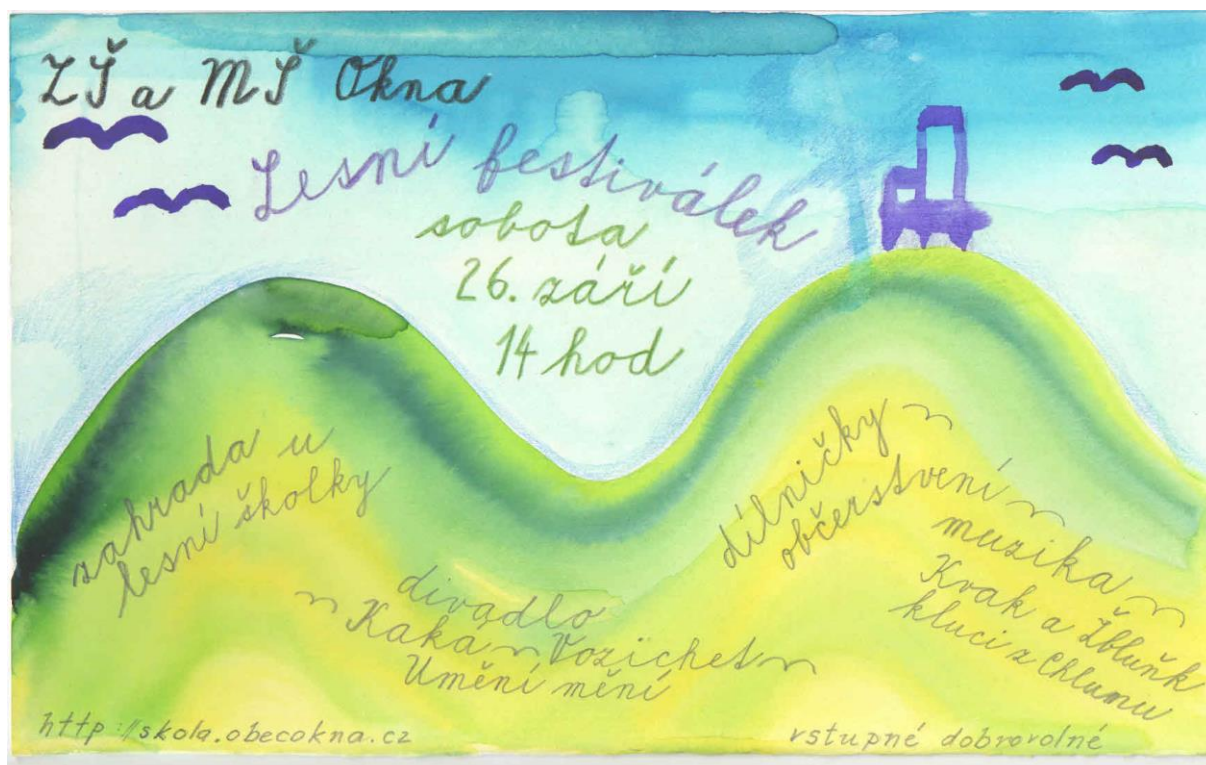 ZŠ a MŠ Okna
Lesní festiválek
sobota
26. září
14 hod
zahrada u
lesní školky
divadlo
Kaka~Vozichet~
Umění mění
dílničky~
občerstvení~
muzika~
Kvak a Žbluňk
kluci z Chlumu
http://skola.obecokna.cz
vstupné dobrovolné